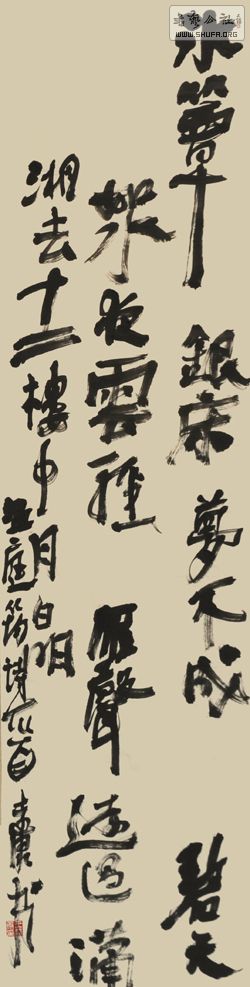 書法公社
WWW.SHUFA.ORG
冰簟銀床夢不成碧天
如水夜雲輕雁聲遠過瀟
湘去十二樓中月自明
溫庭筠詩